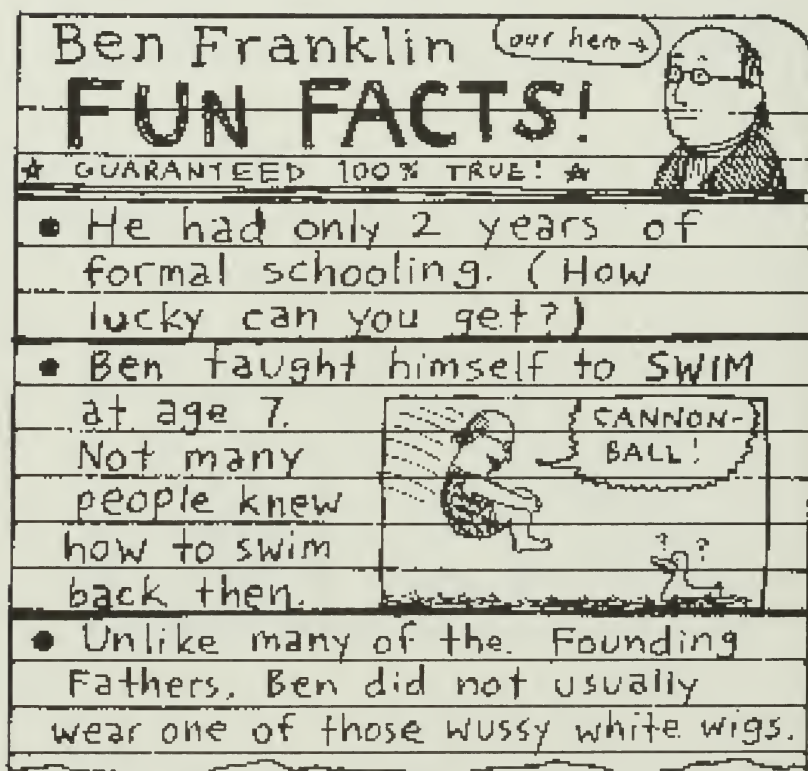 Ben Franklin
our hero →
FUN FACTS!
☆ GUARANTEED 100% TRUE! ☆
• He had only 2 years of
formal schooling. (How
lucky can you get?)
• Ben taught himself to SWIM
at age 7.
Not many
people knew
how to swim
back then.
CANNON-
BALL!
? ?
• Unlike many of the Founding
Fathers, Ben did not usually
wear one of those wussy white wigs.